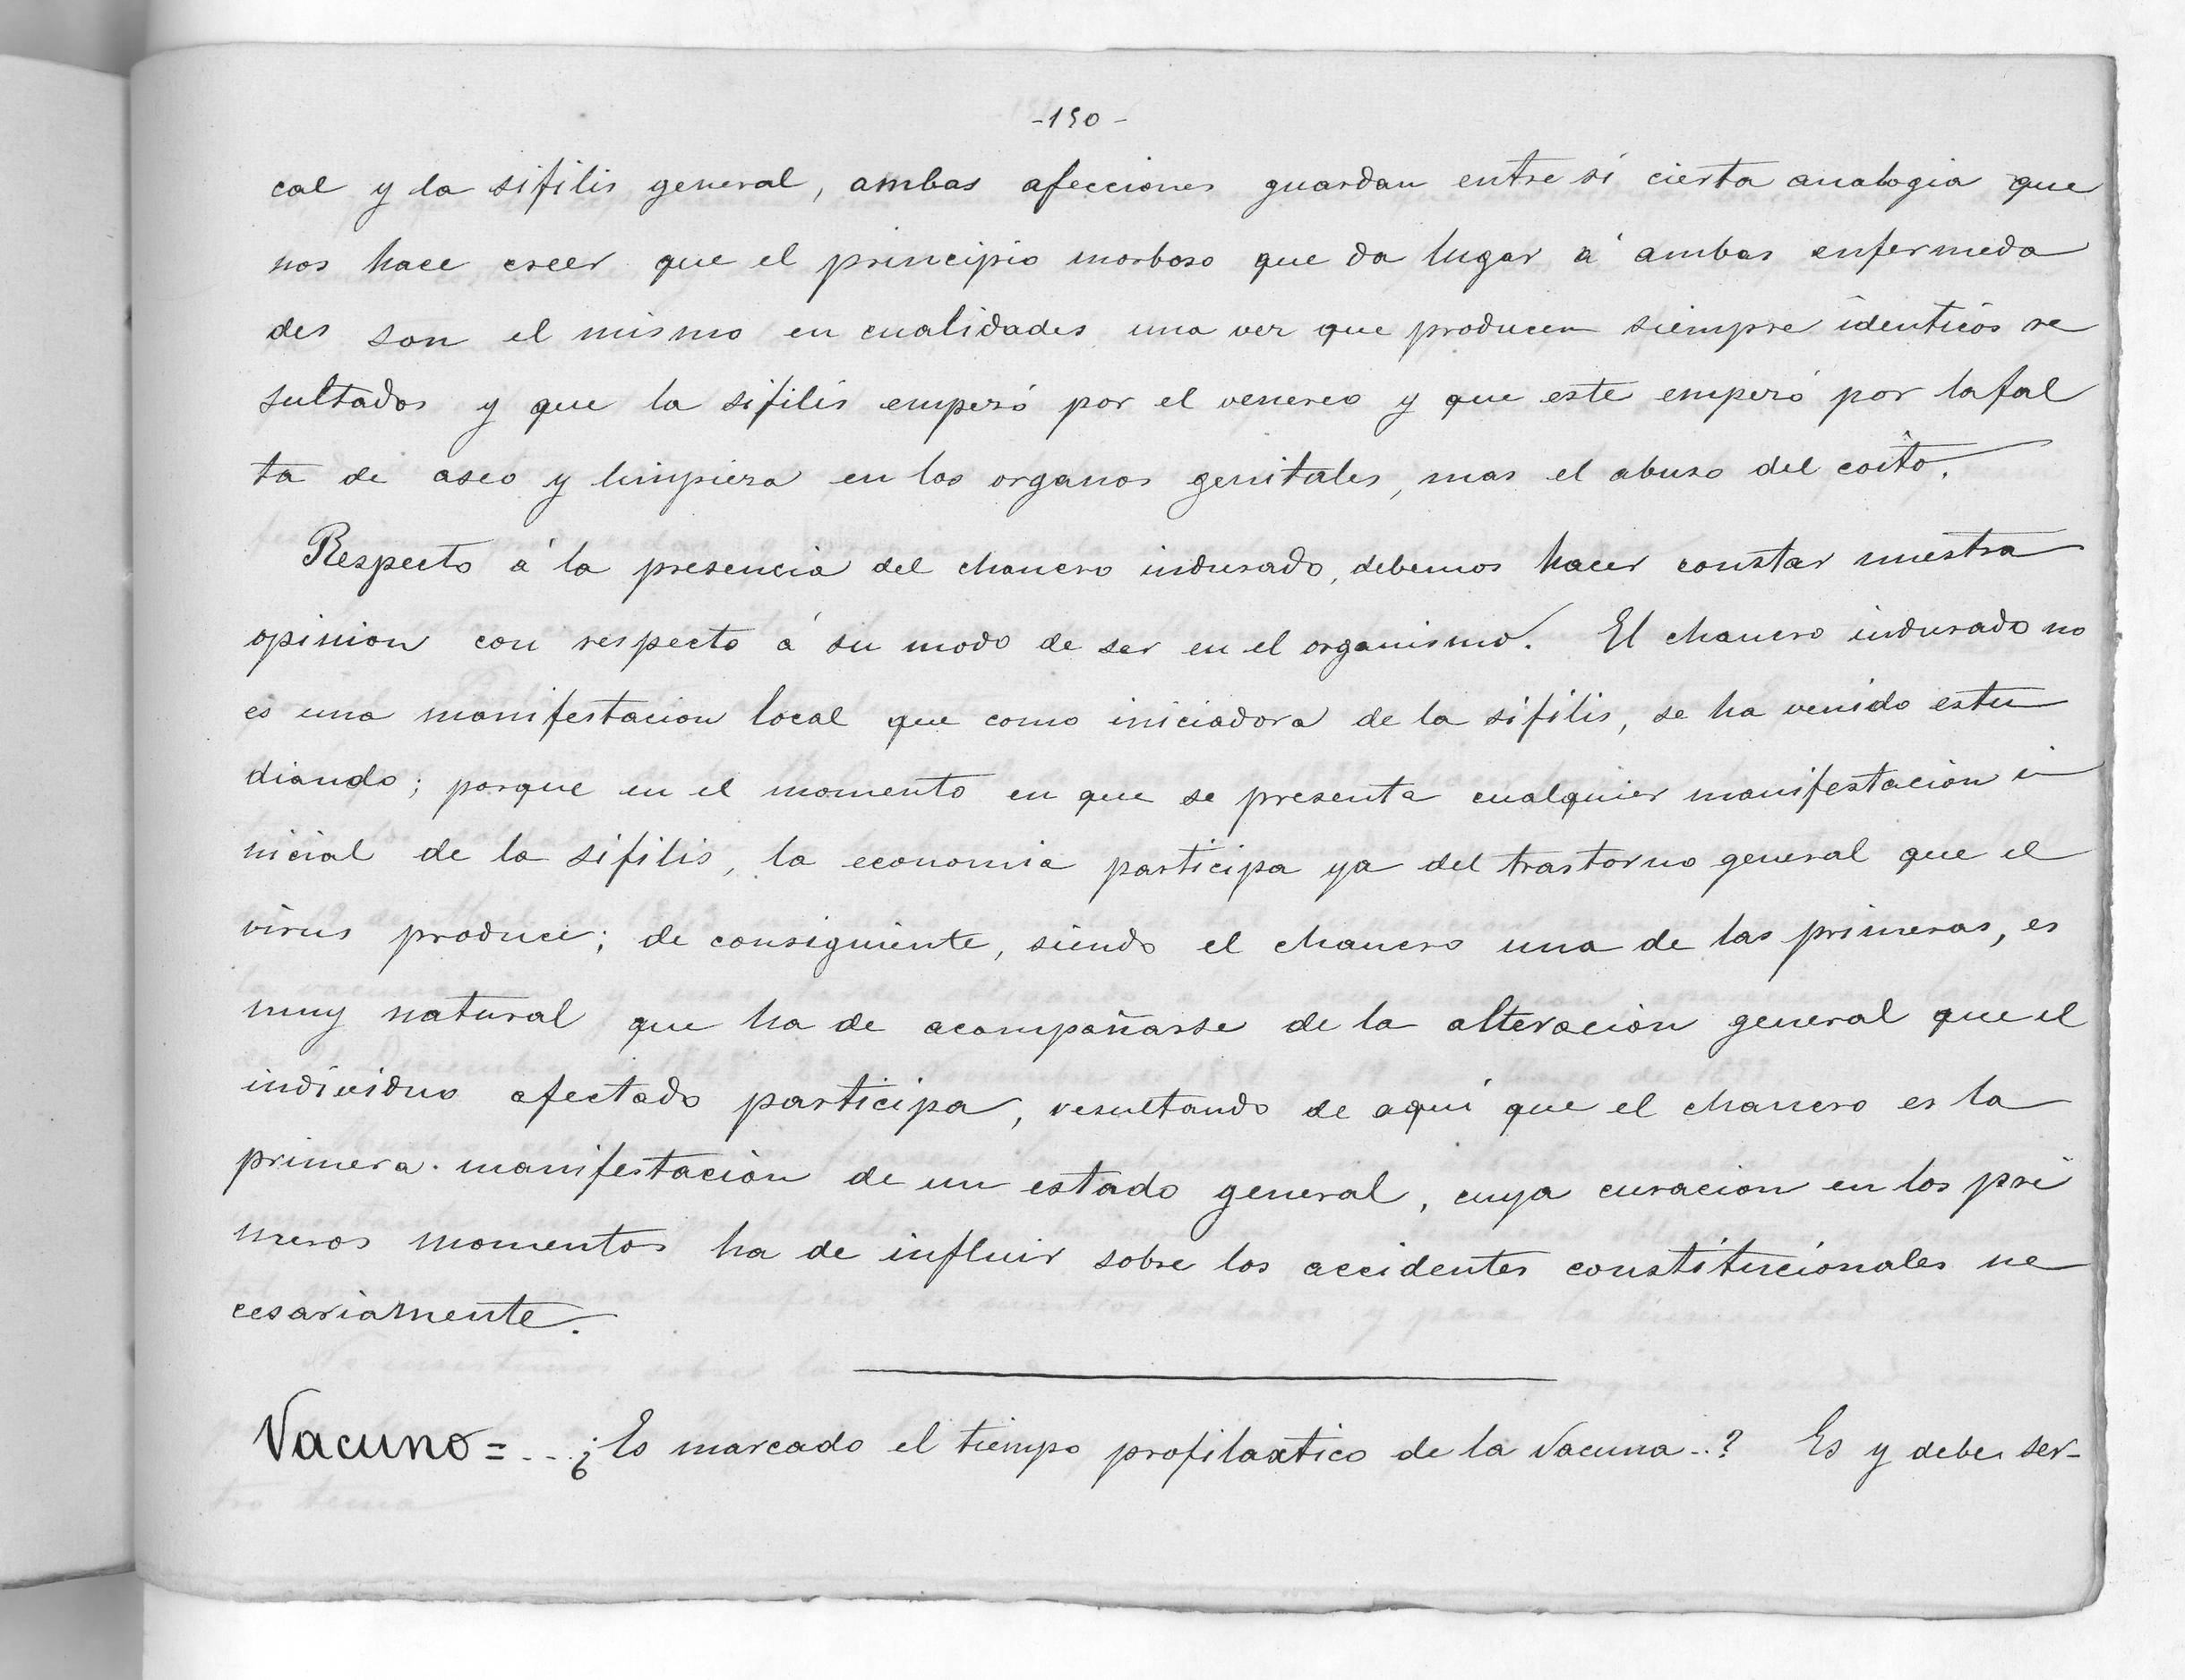 -150-
cal y la sifilis general, ambas afecciones guardan entre sí cierta analogia que
nos hace creer que el principio morboso que da lugar á ambas enfermeda
des son el mismo en cualidades una vez que producen siempre identicos re
sultados y que la sifilis empezó por el venereo y que este empezó por la fal
ta de aseo y limpieza en los organos genitales, mas el abuso del coito.
Respecto á la presencia del chancro indurado, debemos hacer constar nuestra
opinion con respecto á su modo de ser en el organismo. El chancro indurado no
es una manifestacion local que como iniciadora de la sifilis, se ha venido estu
diando; porque en el momento en que se presenta cualquier manifestacion i
nicial de la sifilis, la economia participa ya del trastorno general que el
virus produce; de consiguiente, siendo el chancro una de las primeras, es
muy natural que ha de acompañarse de la alteración general que el
individuo afectado participa, resultando de aquí que el chancro es la
primera manifestación de un estado general, cuya curacion en los pri
meros momentos ha de influir sobre los accidentes constitucionales ne
cesariamente.
Vacuno=... ¿Es marcado el tiempo profilaxtico de la vacuna..? Es y debe ser-